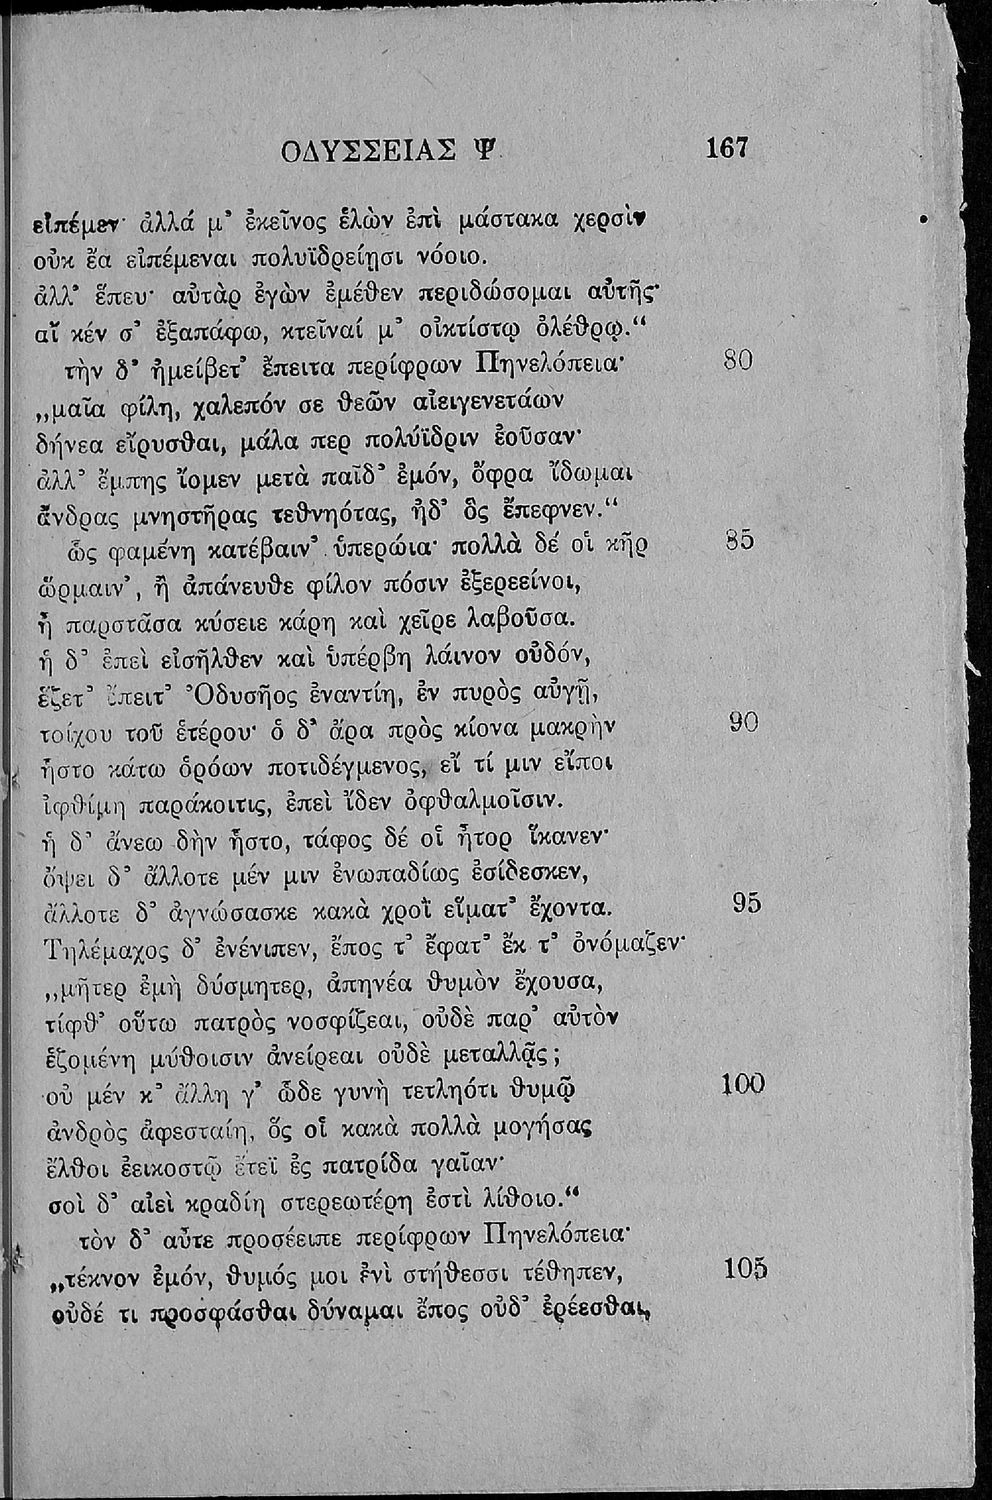 ΟΔΥΣΣΕΙΑΣ Ψ 167
εἰπέμεν· ἀλλά μ᾽ ἐκεῖνος ἑλὼν ἐπὶ μάστακα χερσὶν
οὐκ ἔα εἰπέμεναι πολυϊδρείῃσι νόοιο.
ἀλλ᾽ ἕπευ· αὐτὰρ ἐγὼν ἐμέθεν περιδώσομαι αὐτῆς·
αἴ κέν σ᾽ ἐξαπάφω, κτεῖναί μ᾽ οἰκτίστῳ ὀλέθρῳ.“
τὴν δ᾽ ἠμείβετ᾽ ἔπειτα περίφρων Πηνελόπεια· 80
„μαῖα φίλη, χαλεπόν σε θεῶν αἰειγενετάων
δήνεα εἴρυσθαι, μάλα περ πολύϊδριν ἐοῦσαν·
ἀλλ᾽ ἔμπης ἴομεν μετὰ παῖδ᾽ ἐμόν, ὄφρα ἴδωμαι
ἄνδρας μνηστῆρας τεθνηότας, ἠδ᾽ ὃς ἔπεφνεν.“
ὣς φαμένη κατέβαιν᾽ ὑπερώια· πολλὰ δέ οἱ κῆρ 85
ὥρμαιν᾽, ἢ ἀπάνευθε φίλον πόσιν ἐξερεείνοι,
ἦ παρστᾶσα κύσειε κάρη καὶ χεῖρε λαβοῦσα.
ἡ δ᾽ ἐπεὶ εἰσῆλθεν καὶ ὑπέρβη λάινον οὐδόν,
ἕζετ᾽ ἔπειτ᾽ Ὀδυσῆος ἐναντίη, ἐν πυρὸς αὐγῇ,
τοίχου τοῦ ἑτέρου· ὁ δ᾽ ἄρα πρὸς κίονα μακρὴν 90
ἧστο κάτω ὁρόων ποτιδέγμενος, εἴ τί μιν εἴποι
ἰφθίμη παράκοιτις, ἐπεὶ ἴδεν ὀφθαλμοῖσιν.
ἡ δ᾽ ἄνεω δὴν ἧστο, τάφος δέ οἱ ἦτορ ἵκανεν·
ὄψει δ᾽ ἄλλοτε μέν μιν ἐνωπαδίως ἐσίδεσκεν,
ἄλλοτε δ᾽ ἀγνώσασκε κακὰ χροῒ εἵματ᾽ ἔχοντα. 95
Τηλέμαχος δ᾽ ἐνένιπεν, ἔπος τ᾽ ἔφατ᾽ ἔκ τ᾽ ὀνόμαζεν·
„μῆτερ ἐμὴ δύσμητερ, ἀπηνέα θυμὸν ἔχουσα,
τίφθ᾽ οὕτω πατρὸς νοσφίζεαι, οὐδὲ παρ᾽ αὐτὸν
ἑζομένη μύθοισιν ἀνείρεαι οὐδὲ μεταλλᾷς;
οὐ μέν κ᾽ ἄλλη γ᾽ ὧδε γυνὴ τετληότι θυμῷ 100
ἀνδρὸς ἀφεσταίη, ὅς οἱ κακὰ πολλὰ μογήσας
ἔλθοι ἐεικοστῷ ἔτεϊ ἐς πατρίδα γαῖαν·
σοὶ δ᾽ αἰεὶ κραδίη στερεωτέρη ἐστὶ λίθοιο.“
τὸν δ᾽ αὖτε προσέειπε περίφρων Πηνελόπεια·
„τέκνον ἐμόν, θυμός μοι ἐνὶ στήθεσσι τέθηπεν, 105
οὐδέ τι προσφάσθαι δύναμαι ἔπος οὐδ᾽ ἐρέεσθαι,